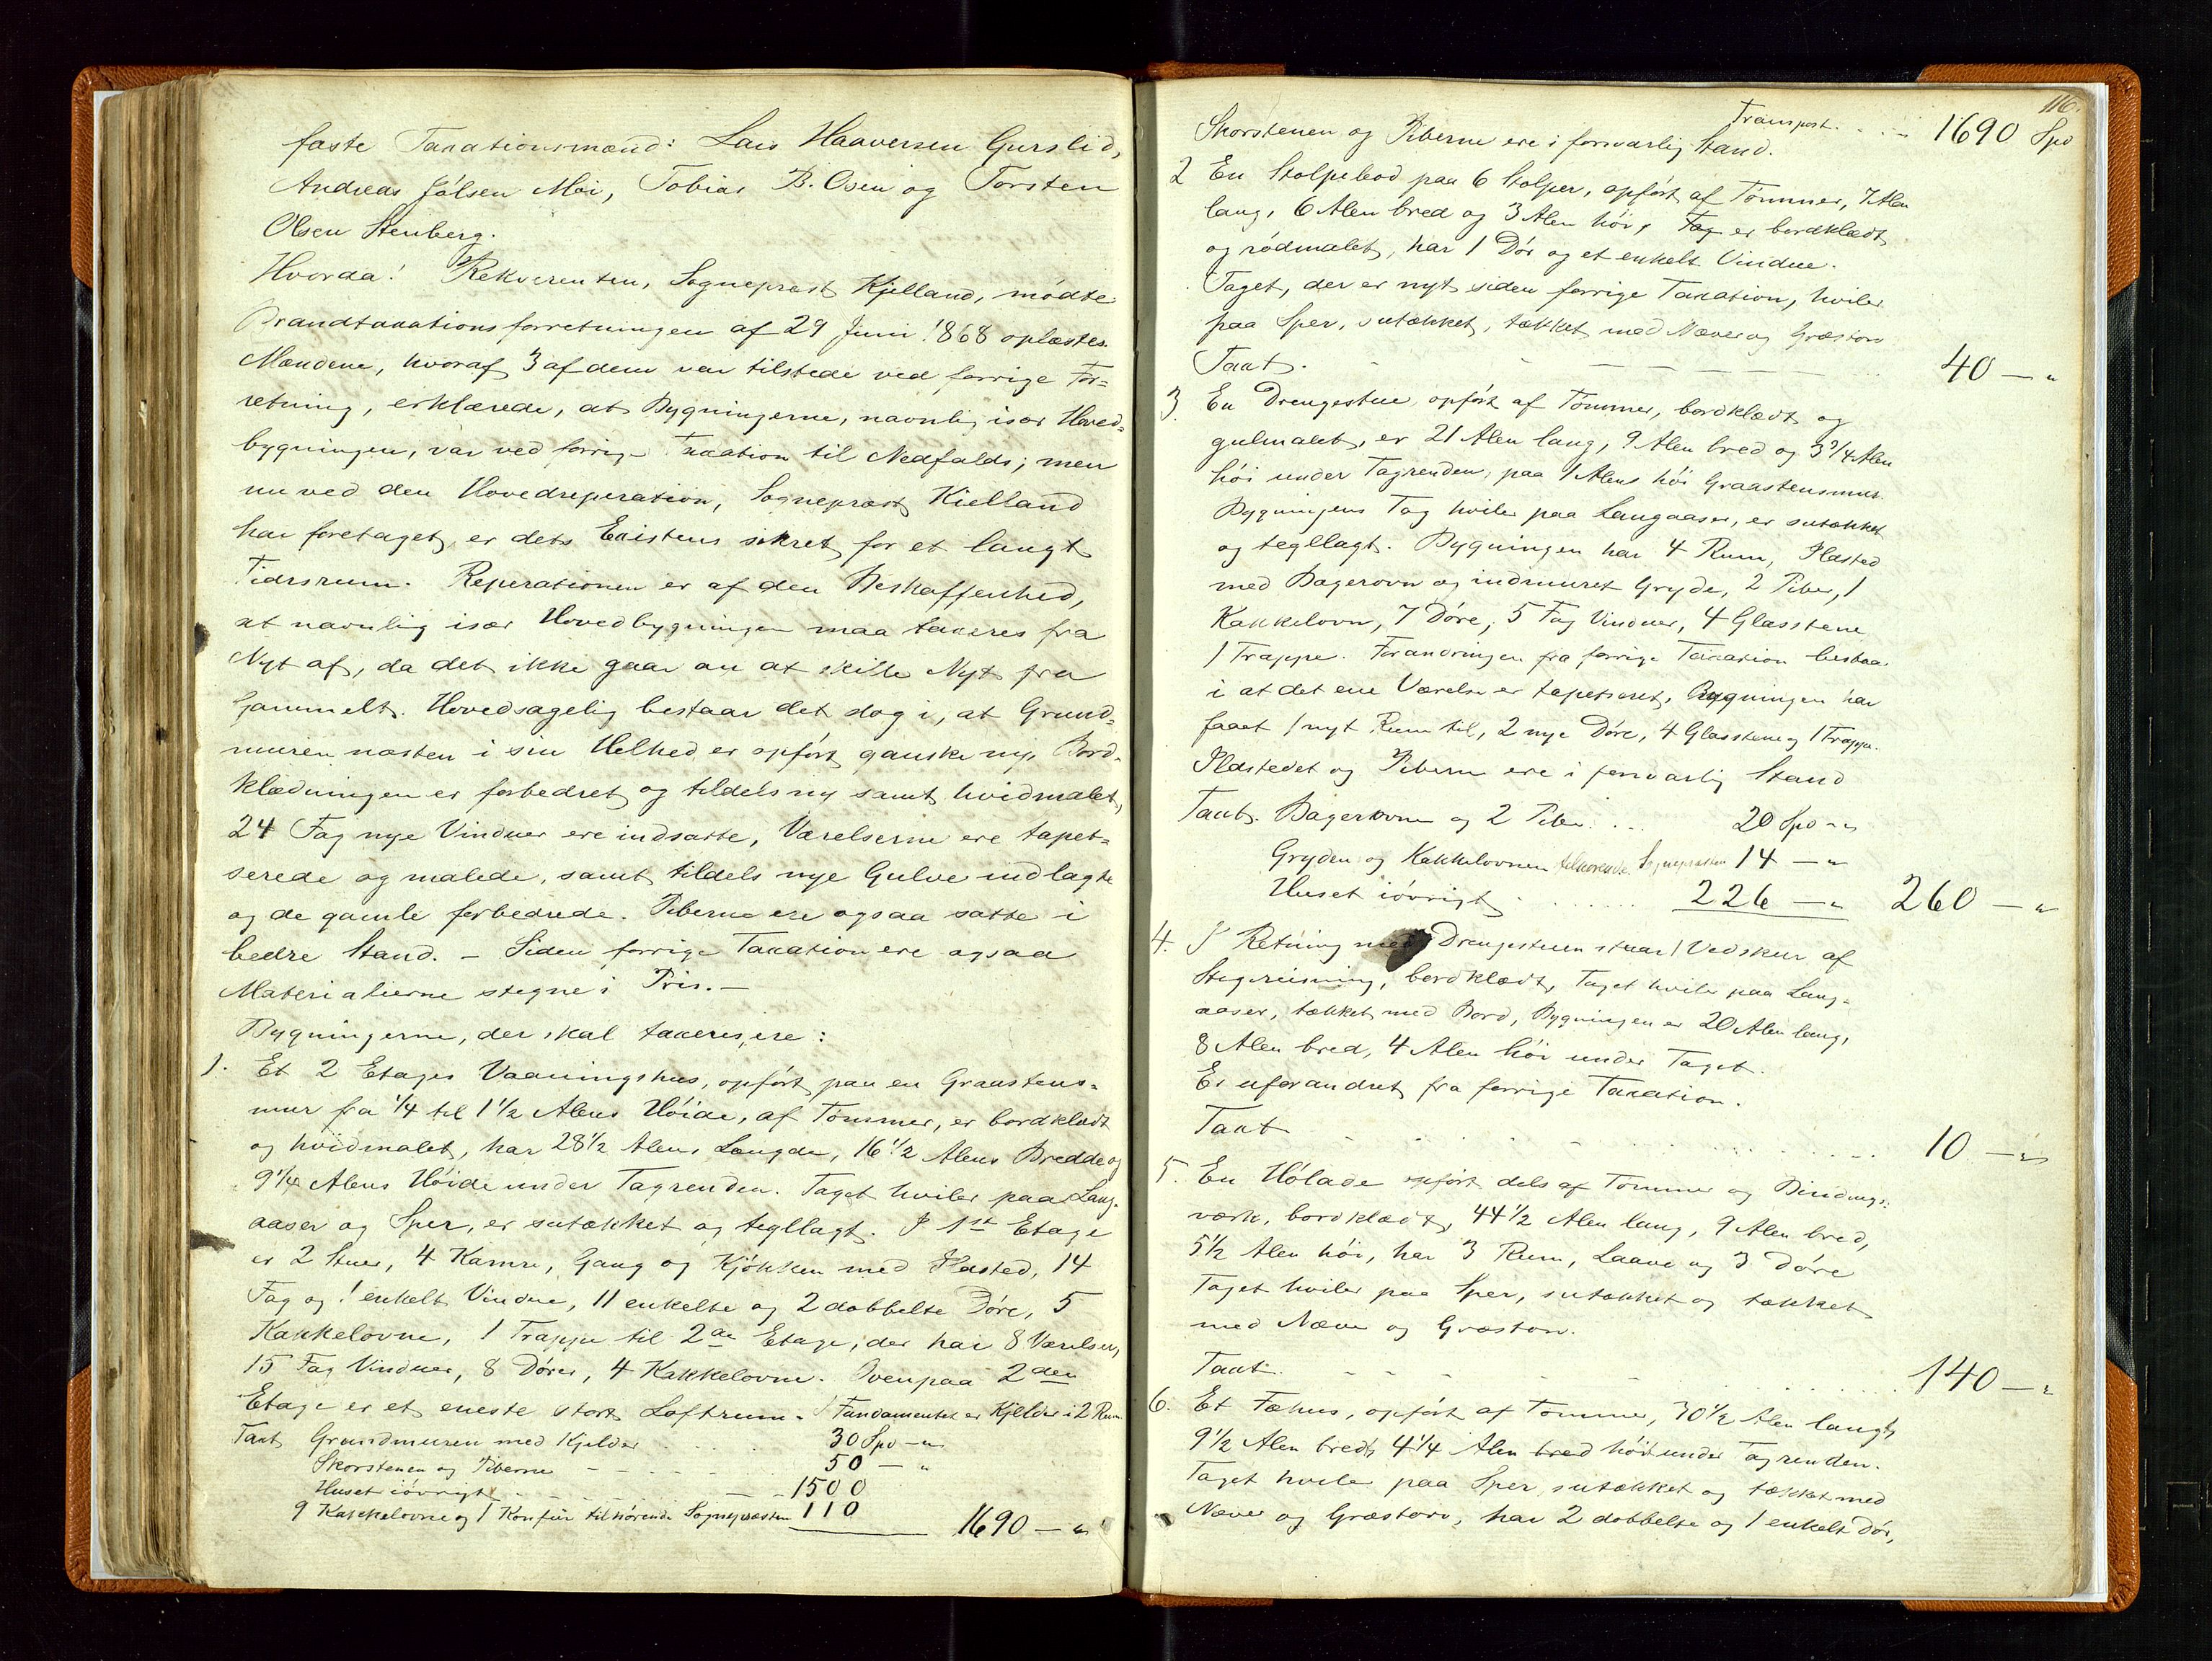 faste Taxationsmænd: Lars Haaversen Gurslid,
Andreas Jólsen Moi, Tobias B. Osen og Torsten
Olsen Stenberg.
Hvorda! Rekverenten, Sognepræst Kjelland, mødte
Brandtaxationsforretningen af 29 Juni 1868 oplæstes.
Mændene, hvoraf 3 af dem var tilstede ved forrige For=
retning, erklærede, at Bygningerne, navnlig især Hoved=
bygningen, var ved forrige Taxation til Nedfalds; men
nu ved den Hovedreperation, Sognepræst Kielland
har foretaget, er dets Existens sikret for et langt
Tidsrum. Reperationen er af den Beskaffenhed,
at navnlig især Hovedbygningen maa taxeres fra
Nyt af, da det ikke gaar an at skille Nyt fra
Gammelt. Hovedsagelig bestaar det dog i, at Grund=
muren næsten i sin Helhed er opført ganske ny, Bord=
klædningen er forbedret og tildels ny samt hvidmalet,
24 Fag nye Vinduer ere indsatte, Værelserne ere tapet=
serede og malede, samt tildels nye Gulve indlagte
og de gamle forbedrede. Piberne ere ogsaa satte i
bedre Stand. – Siden forrige Taxation ere ogsaa
Materialierne stegne i Pris. –
Bygningerne, der skal taxeres, ere:
1. Et 2 Etages Vaaningshus, opført paa en Graastens=
mur fra 1/4 til 1 1/2 Alens Höide, af Tømmer, er bordklædt
og hvidmalet, har 28 1/2 Alens Længde, 16 1/2 Alens Bredde og
9 1/4 Alens Höide under Tagrenden. Taget hviler paa Lang=
aaser og Sper, er sutækket og tegllagt. I 1ste Etage
er 2 Stuer, 4 Kamre, Gang og Kjökken med Ildsted, 14
Fag og 1 enkelt Vindue, 11 enkelte og 2 dobbelte Döre, 5
Kakkelovne, 1 Trappe til 2den Etage, der har 8 Værelser,
15 Fag Vinduer, 8 Döre, 4 Kakkelovne. Ovenpaa 2den
Etage er et eneste stort Loftrum. I Fundamentet er Kjelder i 2 Rum.
Taxt Grundmuren med Kjelder 30 Spd – "
Skorstenen og Piberne – – 50 – "
Huset iövrigt – – 1500
9 Kakkelovne og 1 Komfür tilhörende Sognepræsten 110
1690 – "
116.
Transport . . . 1690 Spd
Skorstenen og Piberne ere i forsvarlig Stand.
2 En Stolpebod paa 6 Stolper, opfört af Tømmer, 7 Alen
lang, 6 Alen bred og 3 Alen höi, er bordklædt
og rödmalet, har 1 Dör og et enkelt Vindue.
Taget, der er nyt siden forrige Taxation, hviler
paa Sper, sutækket, tækket med Næver og Græstorv
Taxt. – – – 40 – "
3. En Drengestue opfört af Tömmer, bordklædt og
gulmalet, er 21 Alen lang, 9 Alen bred og 3 3/4 Alen
höi under Tagrenden, paa 1 Alens höi Graastensmur.
Bygningens Tag hviler paa Langaaser, er sutækket
og tegllagt. Bygningen har 4 Rum, Ildsted
med Bagerovn og indmuret Gryde, 2 Piber, 1
Kakkelovn, 7 Döre, 5 Fag Vinduer, 4 Glasstene
1 Trappe. Forandringen fra forrige Taxation bestaar
i at det ene Værelse er tapetseret, Bygningen har
faaet 1 nyt Rum til, 2 nye Döre, 4 Glasstene og 1 Trappe.
Ildstedet og Piberne ere i forsvarlig Stand
Taxt. Bagerovnen og 2 Piber. . . . 20 Spd – "
Gryden og Kakkelovnen tilhörende Sognepræsten 14 – "
Huset iövrigt . . . . . . 226 – " 260 – "
4. I Retning med Drengestuen staar 1 Vedskur af
Stagreisning, bordklædt, Taget hviler paa Lang=
aaser, tækket med Bord, Bygningen er 20 Alen lang,
8 Alen bred, 4 Alen höi under Taget.
Er uforandret fra forrige Taxation.
Taxt – – . . . . . 10 – "
5. En Hölade opfört dels af Tömmer og Bindings=
værk, bordklædt, 44 1/2 Alen lang, 9 Alen bred,
5 1/2 Alen höi, har 3 Rum, Laave og 3 Döre
Taget hviler paa Sper, sutækket og tækket
med Næver og Græstorv.
Taxt. – – . . . . 140 – "
6. Et Fæhus, opfört af Tömmer, 30 1/2 Alen langt,
9 1/2 Alen bredt, 4 1/4 Alen bred höit under Tagrenden.
Taget hviler paa Sper, sutækket og tækket med
Næver og Græstorv, har 2 dobbelte og 1 enkelt Dör,